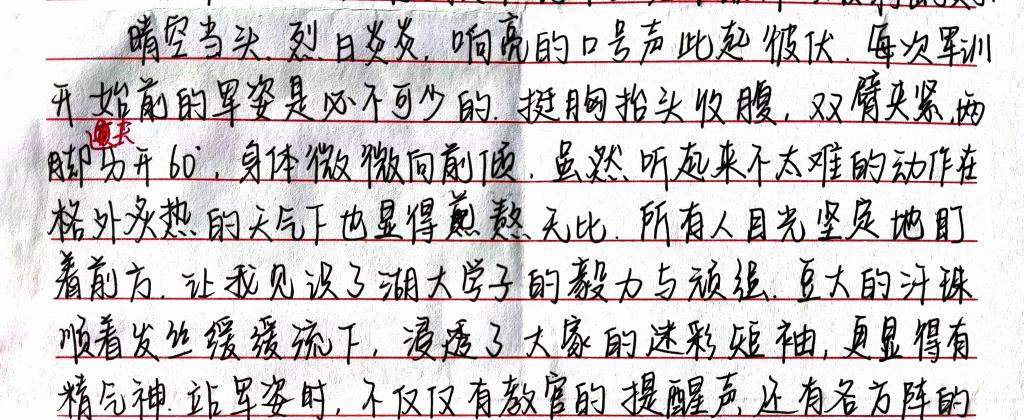 晴空当头,烈日炎炎,响亮的口号声此起彼伏.每次军训
开始前的军姿是必不可少的.挺胸抬头收腹,双臂夹紧,两
脚分开60°,身体微微向前倾.虽然听起来不太难的动作在
格外炙热的天气下也显得煎熬无比.所有人目光坚定地盯
着前方,让我见识了湖大学子的毅力与顽强.豆大的汗珠
顺着发丝缓缓流下,浸透了大家的迷彩短袖,更显得有
精气神.站军姿时,不仅仅有教官的提醒声,还有各方阵的